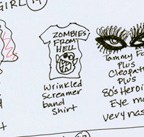 GIRL 14
ZOMBIES
FROM
HELL
Wrinkled
Screamer
band
Shirt
Tammy F
Plus
Cleopat
Plus
80s Heroi
Eye m
very nas